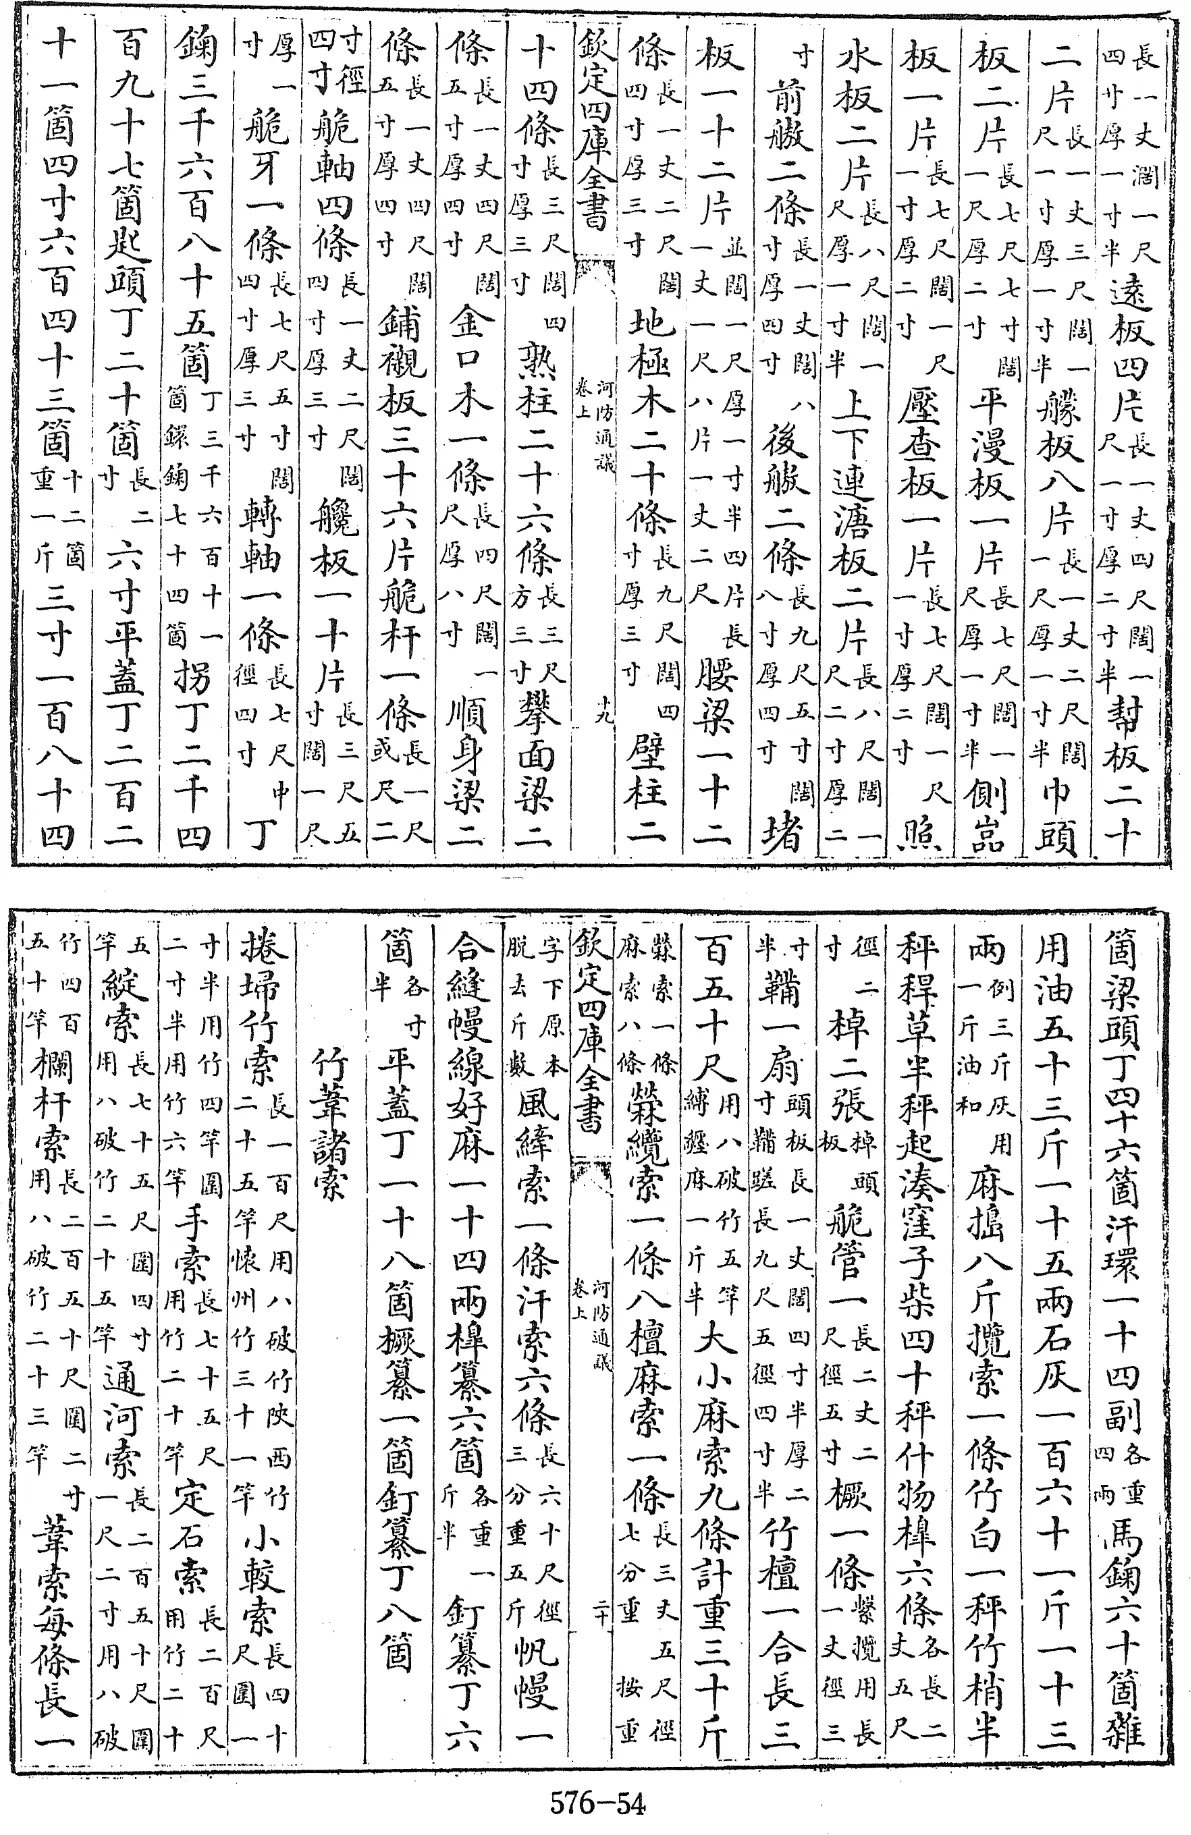 長一丈濶一尺四寸厚一寸半遠板四片長一丈四尺闊一尺一寸厚二寸半幇板二十
二片長一丈三尺闊一尺一寸厚一寸半艨板八片長一丈二尺闊一尺厚一寸半巾頭
板二片長七尺七寸闊一尺厚二寸平漫板一片長七尺闊一尺厚一寸半側嵓
板一片長七尺闊一尺一寸厚二寸壓查板一片長七尺闊一尺一寸厚二寸照
水板二片長八尺闊一尺厚一寸半上下連溏板二片長八尺闊一尺二寸厚二
寸前艥二條長一丈闊八寸厚四寸後艥二條長九尺五寸闊八寸厚四寸堵
板一十二片並闊一尺厚一寸半四片長一丈一尺八片一丈二尺腰梁一十二
條長一丈二尺闊四寸厚三寸地極木二十條長九尺闊四寸厚三寸壁柱二
欽定四庫全書 河防通議 卷上 十九
十四條長三尺闊四寸厚三寸熟柱二十六條長三尺方三寸攀面梁二
條長一丈四尺闊五寸厚四寸金口木一條長四尺闊一尺厚八寸順身梁二
條長一丈四尺闊五寸厚四寸鋪襯板三十六片舵杆一條長一尺或尺二
寸徑四寸舵軸四條長一丈二尺闊四寸厚三寸艬板一十片長三尺五寸闊一尺
厚一寸舵牙一條長七尺五寸闊四寸厚三寸轉軸一條長七尺中徑四寸丁
鋦三千六百八十五箇丁三千六百十一箇鋦七十四箇拐丁二千四
百九十七箇匙頭丁二十箇長二寸六寸平蓋丁二百二
十一箇四寸六百四十三箇十二箇重一斤三寸一百八十四
箇梁頭丁四十六箇汗環一十四副各重四兩馬鋦六十箇雜
用油五十三斤一十五兩石灰一百六十一斤一十三
兩例三斤灰用一斤油和麻擣八斤攬索一條竹白一秤竹梢半
秤稈草半秤起湊窪子柴四十秤什物槹六條各長二丈五尺
徑二寸棹二張棹頭板舵管一長二丈二尺徑五寸橛一條繫攬用長一丈徑三
寸半鞴一扇頭板長一丈闊四寸半厚二寸鞴蹉長九尺五徑四寸半竹檀一合長三
百五十尺用八破竹五竿縛纒麻一斤半大小麻索九條計重三十斤
縈索一條麻索八條縈纜索一條八檀麻索一條長三丈五尺徑七分重 按重
欽定四庫全書 河防通議 卷上 二十
字下原本脱去斤數風絳索一條汗索六條長六十尺徑三分重五斤帆幔一
合縫幔線好麻一十四兩槹纂六箇各重一斤半釘纂丁六
箇各寸半平蓋丁一十八箇橛纂一箇釘纂丁八箇
竹葦諸索
捲埽竹索長一百尺用八破竹陜西竹二十五竿懐州竹三十一竿小䡈索長四十尺圍一
寸半用竹四竿圍二寸半用竹六竿手索長七十五尺用竹二十竿定石索長二百尺用竹二十
五竿綻索長七十五尺圍四寸用八破竹二十五竿通河索長二百五十尺圍一尺二寸用八破
竹四百五十竿欄杆索長二百五十尺圍二寸用八破竹二十三竿葦索每條長一
576-54